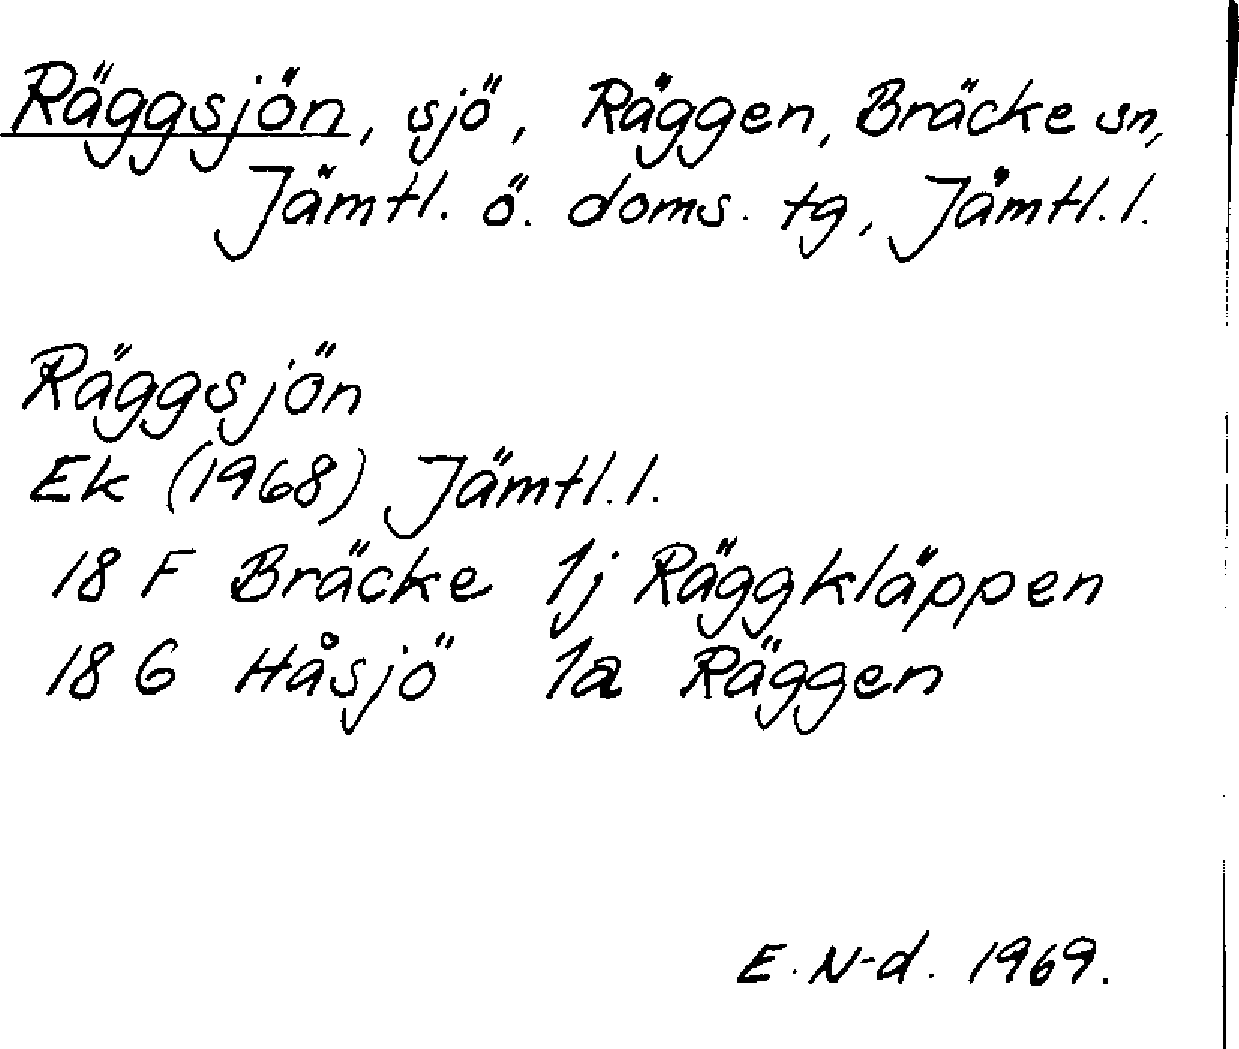 Räggsjön, sjö, Räggen, Bräcke sn,
Jämtl. ö. doms. tg, Jämtl. l.
Räggsjön
Ek (1968) Jämtl. l.
18 F Bräcke 1j Räggkläppen
18 G Håsjö 1a Räggen
E. N-d. 1969.